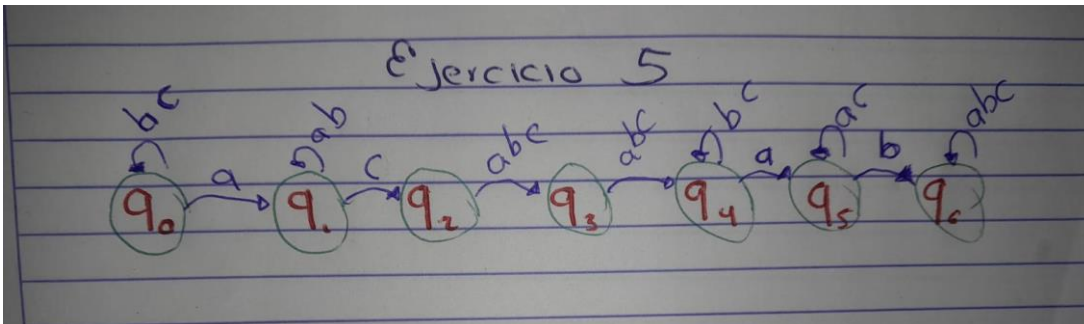 Ejercicio 5
bc ab abc abc bc ac abc
a c a b
q0 q1 q2 q3 q4 q5 q6